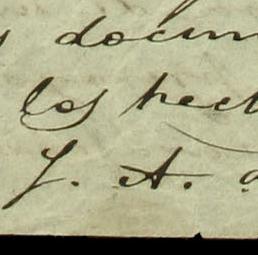 s docum
los hect
J. A. a